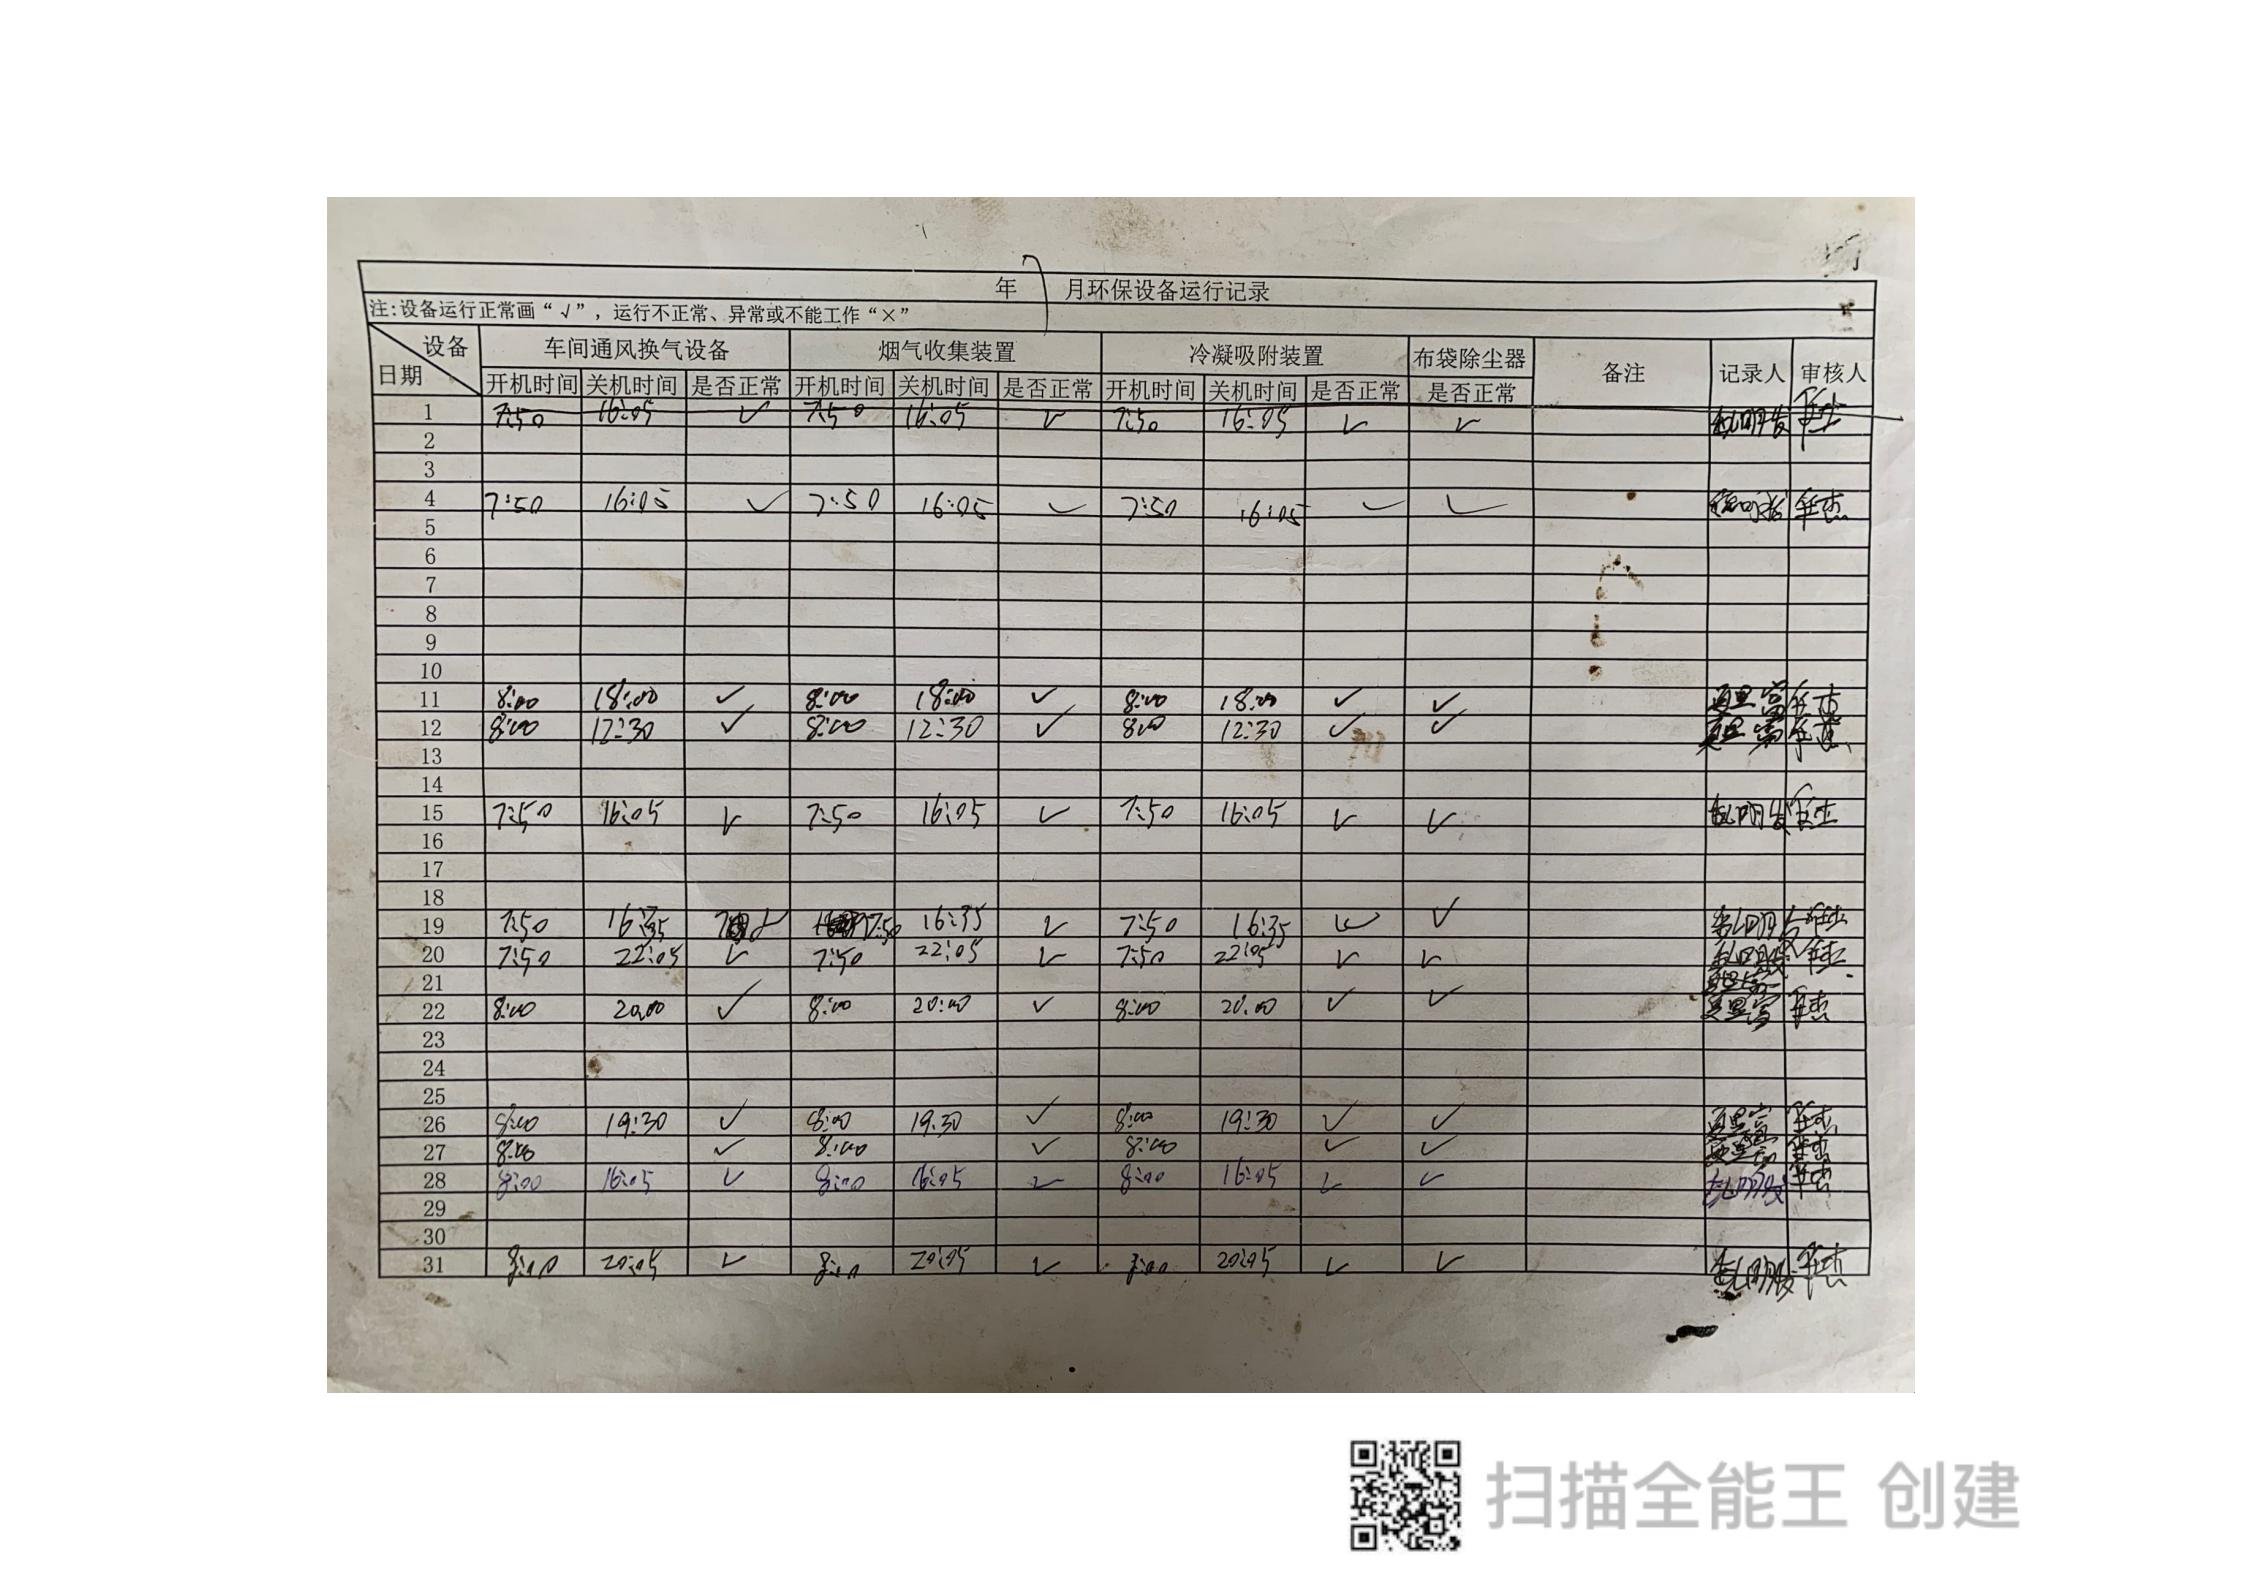 年 7 月环保设备运行记录
注:设备运行正常画“√”，运行不正常、异常或不能工作“×”
设备 日期 车间通风换气设备 烟气收集装置 冷凝吸附装置 布袋除尘器 备注 记录人 审核人
开机时间 关机时间 是否正常 开机时间 关机时间 是否正常 开机时间 关机时间 是否正常 是否正常
1 7:50 16:05 ✓ 7:50 16:05 ✓ 7:50 16:05 ✓ ✓
2
3
4 7:50 16:05 ✓ 7:50 16:05 ✓ 7:50 16:05 ✓ ✓
5
6
7
8
9
10
11 8:00 18:00 ✓ 8:00 18:00 ✓ 8:00 18:00 ✓ ✓
12 8:00 12:30 ✓ 8:00 12:30 ✓ 8:00 12:30 ✓ ✓
13
14
15 7:50 16:05 ✓ 7:50 16:05 ✓ 7:50 16:05 ✓ ✓
16
17
18
19 7:50 16:35 ✓ 7:50 16:35 ✓ 7:50 16:35 ✓ ✓
20 7:50 22:05 ✓ 7:50 22:05 ✓ 7:50 22:05 ✓ ✓
21
22 8:00 20:00 ✓ 8:00 20:00 ✓ 8:00 20:00 ✓ ✓
23
24
25
26 8:00 19:30 ✓ 8:00 19:30 ✓ 8:00 19:30 ✓ ✓
27 8:00 ✓ 8:00 ✓ 8:00 ✓ ✓
28 8:00 16:05 ✓ 8:00 16:05 ✓ 8:00 16:05 ✓ ✓
29
30
31 8:00 20:05 ✓ 8:00 20:05 ✓ 8:00 20:05 ✓ ✓
扫描全能王 创建